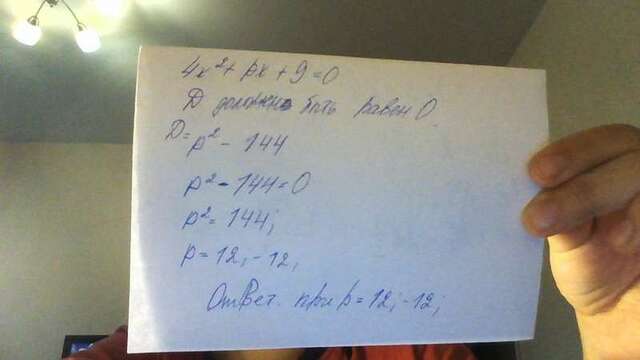 4x² + px + 9 = 0
D должно быть равен 0.
D = p² - 144
p² - 144 = 0
p² = 144;
p = 12; -12;
Ответ. при p = 12; -12;